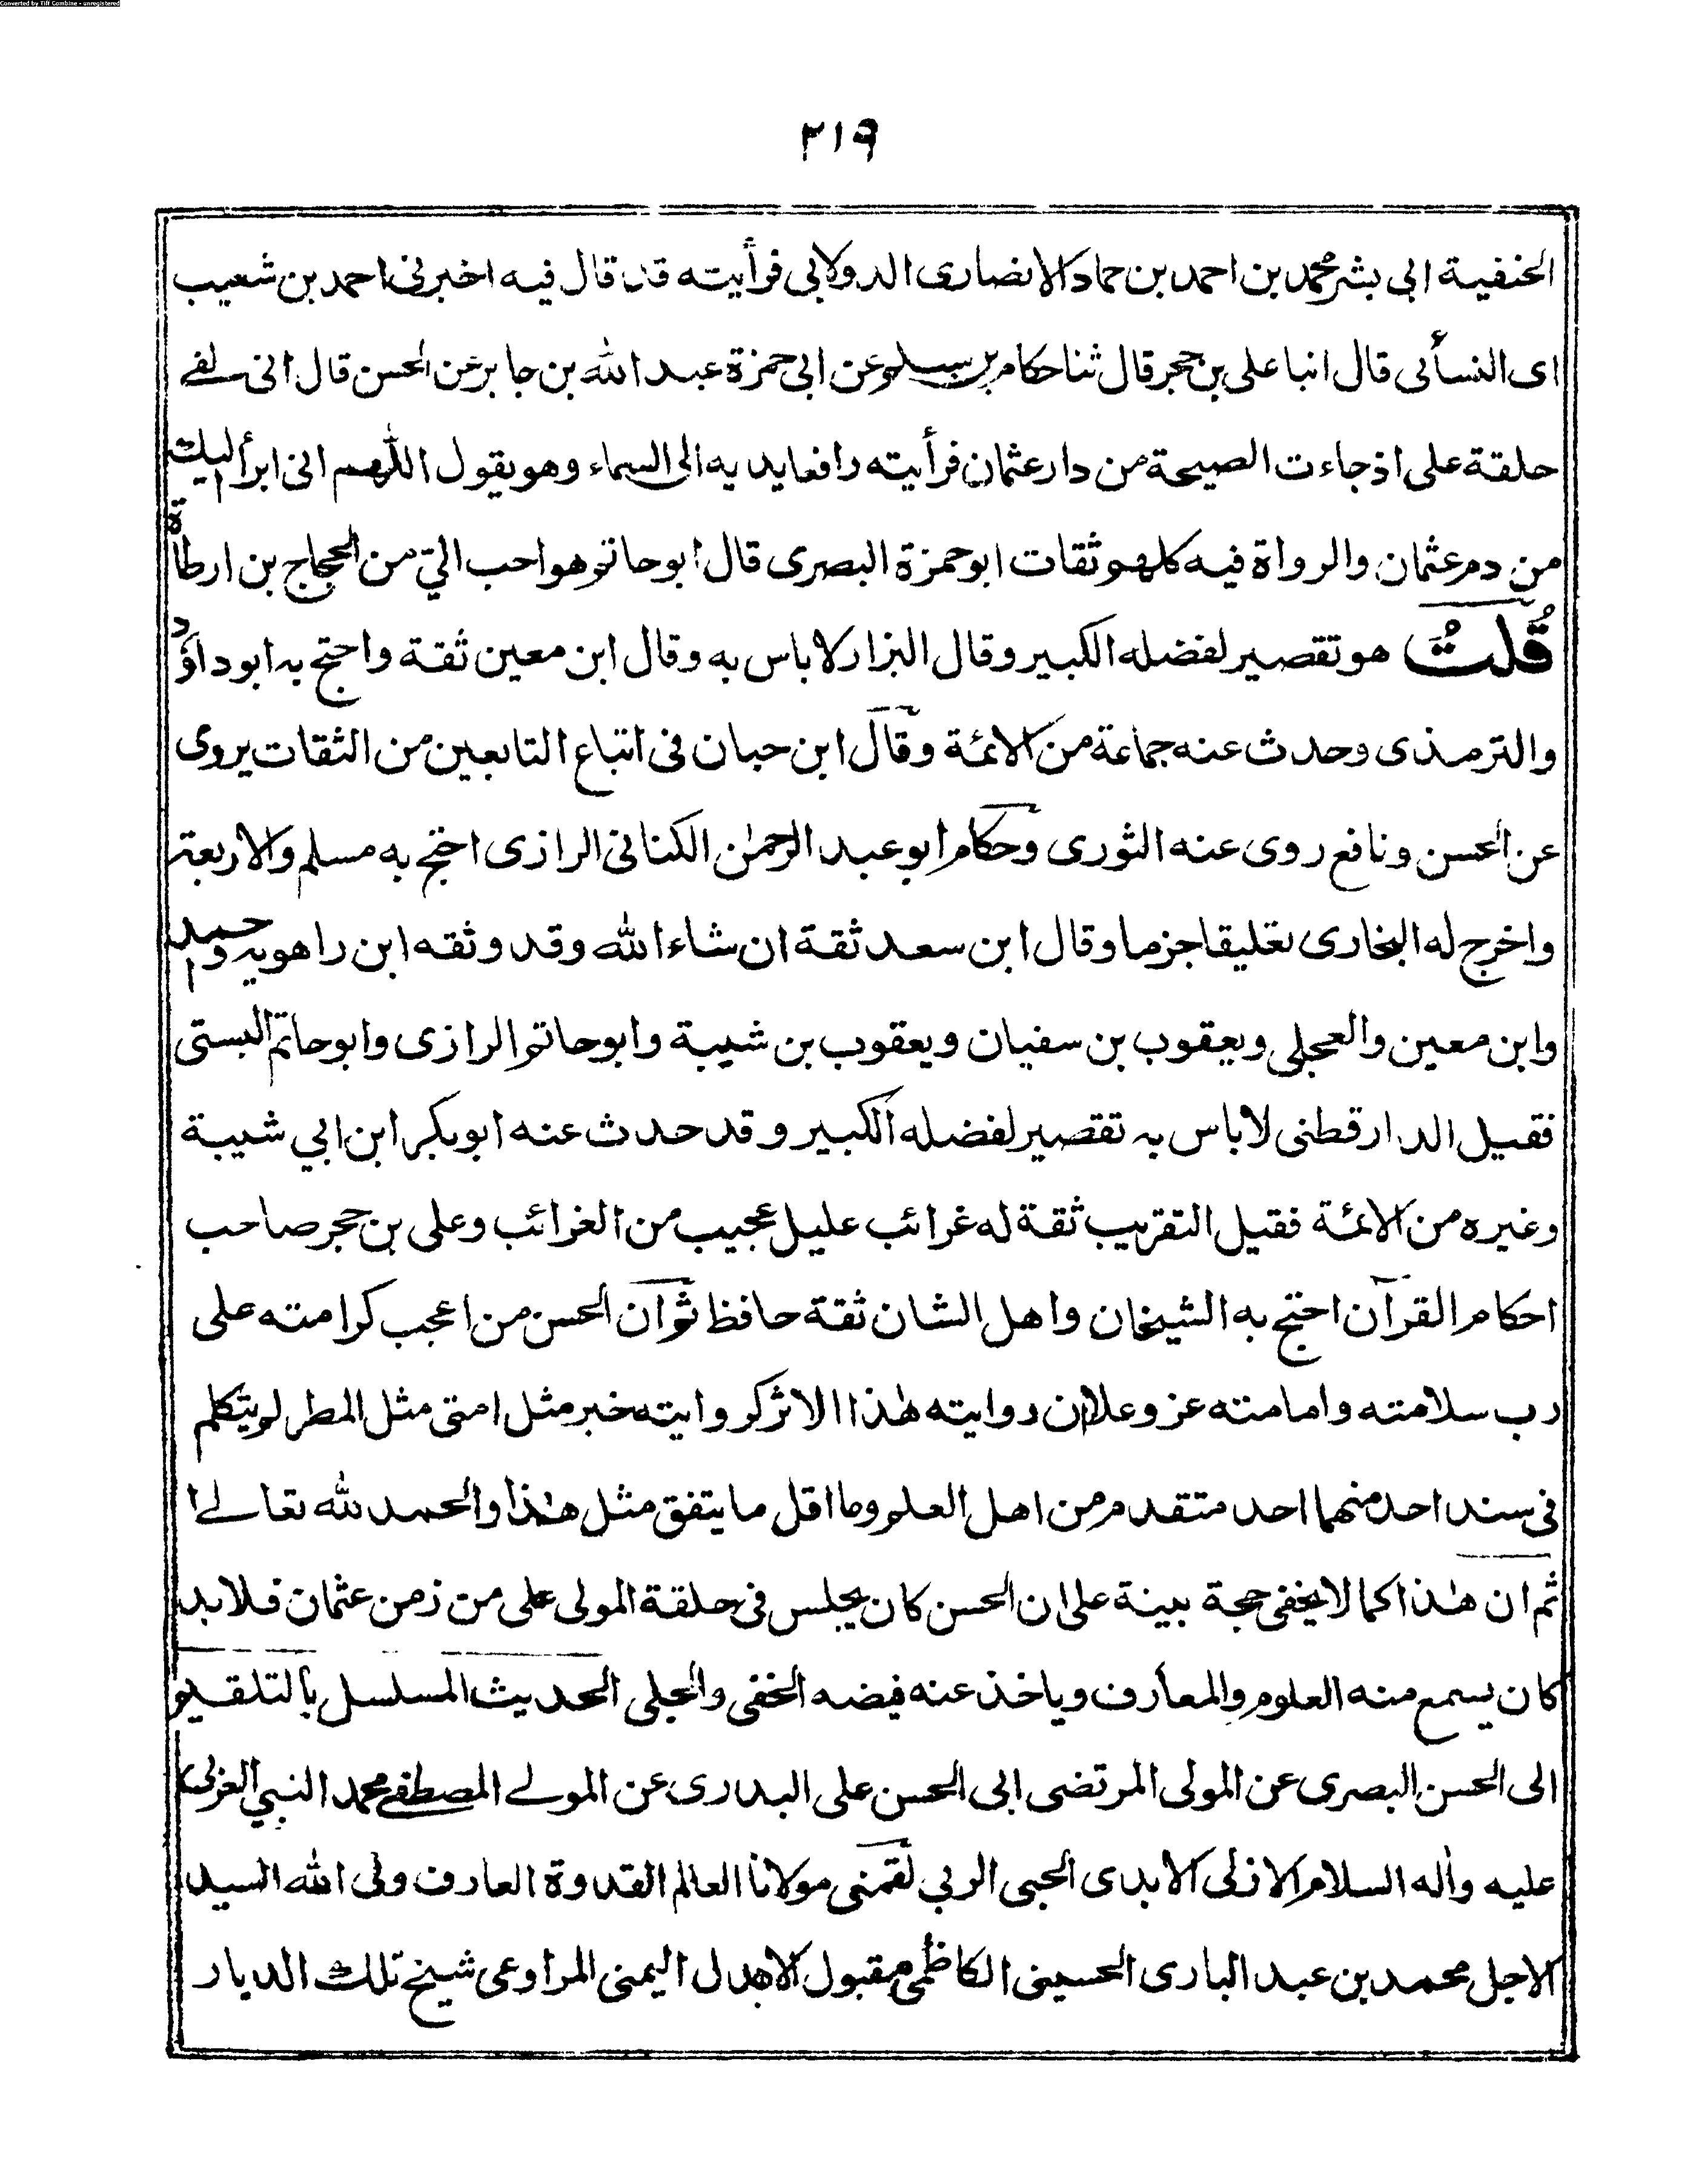 Converted by Tiff Combine - unregistered
٢١٩
الحنفية ابى بشر محمد بن احمد بن حماد الانصارى الدولابى فرأيته قد قال فيه اخبرنى احمد بن شعيب
اى النسأىى قال انبا على بن حجر قال ثنا حكام بن سلم عن ابى حمزة عبد الله بن جابر عن الحسن قال انى لفے
حلقة على اذ جاءت الصيحة من دار عثمان فرأيته رافعا يديه الى السماء وهو يقول اللٰهم انى ابرأ اليك
من دم عثمان والرواة فيه كلهم ثقات ابو حمزة البصرى قال ابو حاتم هو احب الىّ من الحجاج بن ارطاة
قُلتُ هو تقصير لفضله الكبير وقال البزار لا باس به وقال ابن معين ثقة واحتج به ابو داؤد
والترمذى وحدث عنه جماعة من الائمة وقال ابن حبان فى اتباع التابعين من الثقات يروى
عن الحسن ونافع روى عنه الثورى وحكام ابو عبد الرحمٰن الكنانى الرازى احتج به مسلم والاربعة
واخرج له البخارى تعليقا جزما وقال ابن سعد ثقة ان شاء الله وقد وثقه ابن راهويه واحمد
وابن معين والعجلى ويعقوب بن سفيان ويعقوب بن شيبة وابو حاتم الرازى وابو حاتم البستى
فقيل الدارقطنى لا باس به تقصير لفضله الكبير وقد حدث عنه ابو بكر ابن ابي شيبة
وغيره من الائمة فقيل التقريب ثقة له غرائب عليل عجيب من الغرائب وعلى بن حجر صاحب
احكام القرآن احتج به الشيخان واهل الشان ثقة حافظ ثم ان الحسن من اعجب كرامته على
رب سلامته وامامته عز وعلا ان روايته هٰذا الاثر كروايته خبر مثل امتى مثل المطر لم يتكلم
فى سند احد منهما احد متقدم من اهل العلم وما اقل ما يتفق مثل هٰذا والحمد لله تعالے ا
ثم ان هٰذا كما لا يخفى حجة بينة على ان الحسن كان يجلس فى حلقة المولى على من زمن عثمان فلا بد
كان يسمع منه العلوم والمعارف وياخذ عنه فيضه الخفى والجلى الحديث المسلسل بالتلقيم
الى الحسن البصرى عن المولى المرتضى ابى الحسن على البدرى عن المولے المصطفے محمد النبي العربى
عليه واٰله السلام الازلى الابدى الحبى الربي لقمنى مولانا العالم القدوة العارف ولى الله السيد
الاجل محمد بن عبد البارى الحسينى الكاظمى مقبول الاهدل اليمنى المراوعى شيخ تلك الديار